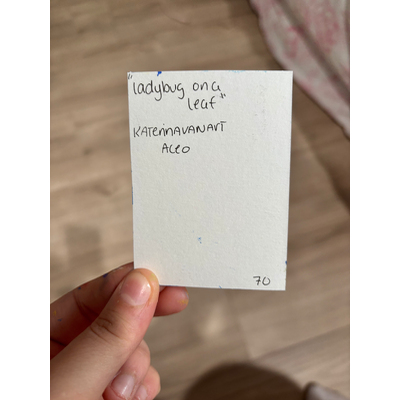 "ladybug on a
leaf"
KATerinAVANArT
ACEO
70